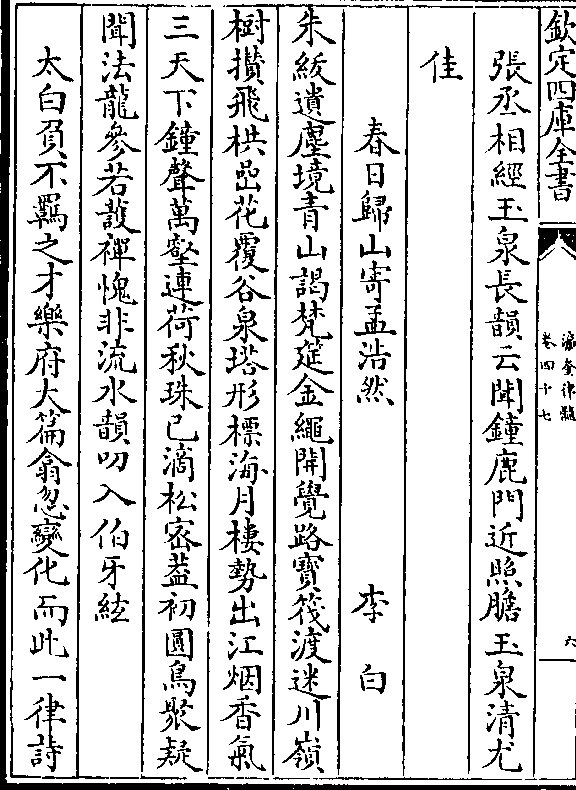 欽定四庫全書
瀛奎律髓
卷四十七
六
張丞相經玉泉長韻云聞鐘鹿門近照膽玉泉清尤
佳
春日歸山寄孟浩然 李白
朱紱遺塵境青山謁梵筵金繩開覺路寶筏渡迷川嶺
樹攅飛栱嵓花覆谷泉塔形標海月樓勢出江烟香氣
三天下鐘聲萬壑連荷秋珠已滴松宻葢初圓鳥聚疑
聞法龍參若䕶禪愧非流水韻叨入伯牙絃
太白負不羈之才樂府大篇翕忽變化而此一律詩